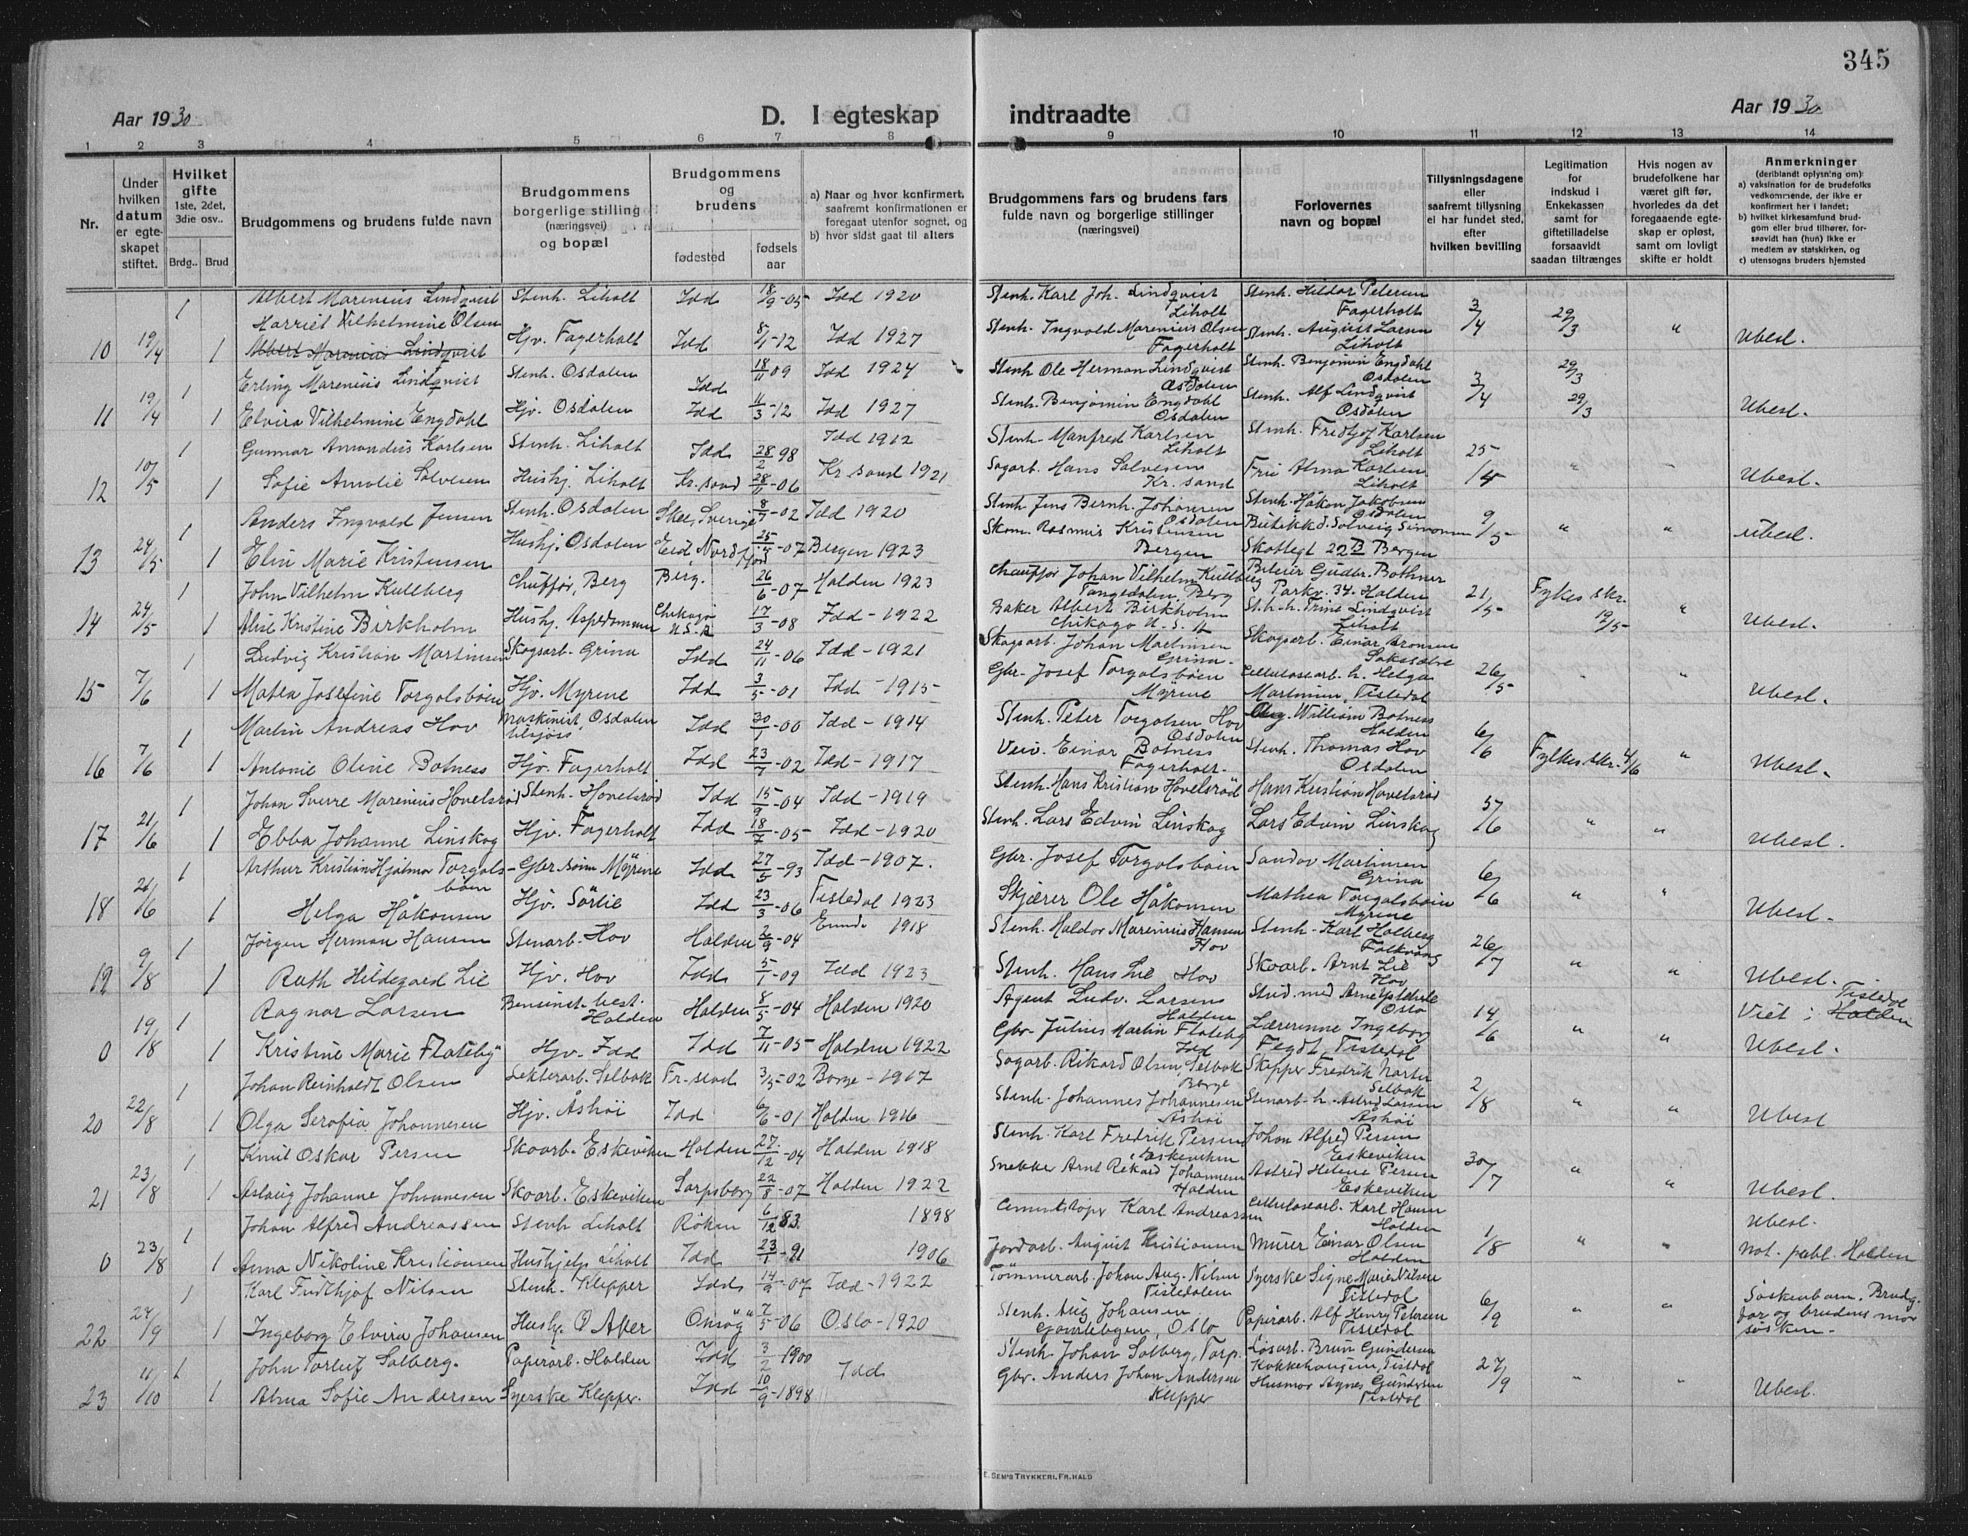 345
Aar 1930
D. I egteskap indtraadte
Aar 1930
1 2 3 4 5 6 7 8 9 10 11 12 13 14
Nr.
Under hvilken datum er egteskapet stiftet.
Hvilket gifte 1ste, 2det, 3die osv..
Brdg.. Brud
Brudgommens og brudens fulde navn
Brudgommens borgerlige stilling (næringsvei) og bopæl
Brudgommens og brudens
fødested
fødsels aar
a) Naar og hvor konfirmert, saafremt konfirmationen er foregaat utenfor sognet, og
b) hvor sidst gaat til alters
Brudgommens fars og brudens fars fulde navn og borgerlige stillinger (næringsvei)
Forlovernes navn og bopæl
Tillysningsdagene eller saafremt tillysning ei har fundet sted, efter hvilken bevilling
Legitimation for indskud i Enkekassen samt for giftetilladelse forsaavidt saadan tiltrænges
Hvis nogen av brudefolkene har været gift før, hvorledes da det foregaaende egteskap er opløst, samt om lovligt skifte er holdt
Anmerkninger (deriblandt oplysn'ng om):
a) vaksination for de brudefolks vedkommende, der ikke er konfirmert her i landet;
b) hvilket kirkesamfund brudgom eller brud tilhører, forsaavidt han (hun) ikke er medlem av statskirken, og
c) utensogns bruders hjemsted
1 Albert Marenius Lindqvist Stenh. Liholt Idd 18/9-05 Idd 1920 Stenh. Karl Joh. Lindqvist Liholt Stenh. Hildor Petersen Fagerholt 3/4 29/3
10 19/4 1 Harriet Vilhelmine Olsen Hjv. Fagerholt Idd 5/1-12 Idd 1927 Stenh. Ingvald Marenius Olsen Fagerholt Stenh. August Larsen Liholt " Ubesl.
Albert Marenius Lindqvist
1 Erling Marenius Lindqvist Stenh. Osdalen Idd 18/11 09 Idd 1924 Stenh Ole Herman Lindqvist Osdalen Stenh. Benjamin Engdahl Osdalen 3/4 29/3
11 19/4 1 Elvira Vilhelmine Engdahl Hjv. Osdalen Idd 11/3-12 Idd 1927 Stenh. Benjamin Engdahl Osdalen Stenh. Alf Lindqvist Osdalen 29/3 Ubesl.
1 Gunnar Amandus Karlsen Stenh. Liholt Idd 28/2 98 Idd 1912 Stenh. Manfred Karlsen Liholt Stenh. Fridtjof Karlsen Liholt 25/4
12 10/5 1 Sofie Amalie Salvesen Hushj. Liholt Kr. sand 28/11-06 Kr. sand 1921 Sagarb. Hans Salvesen Kr. sand Fru Alma Karlsen Liholt " - Ubesl.
1 Anders Ingvald Jensen Stenh. Osdalen Skee, Sverige 8/7-02 Idd 1920 Stenh Jens Bernh. Johansen Osdalen Stenh. Håkon Jakobsen Osdalen 9/5
13 24/5 1 Elin Marie Kristensen Hushj. Osdalen Eid, Nordfjord 25/4-07 Bergen 1923 Skom. Rasmus Kristensen Bergen Butikkd. Solveig Simonsen Skottegt 22B Bergen " " Ubesl.
1 John Vilhelm Kullberg Chuffør, Berg Berg. 26/6-07 Halden 1923 Chauffør Johan Vilhelm Kullberg Tangedalen, Berg Bileier Gudbr. Bothner Parkv. 34. Halden 21/5 Fylkes skr. 12/5
14 24/5 1 Alise Kristine Birkholm Hushj. Aspedammen Chikago U.S.A 17/3-08 Idd-1922 Baker Albert Birkholm Chikago U.S.A St.h.h. Trine Lindqvist Liholt " Ubesl.
1 Ludvig Kristian Martinsen Skogsarb. Grina Idd 24/11-06 Idd-1921 Skogsarb. Johan Martinsen Grina Skogsarb. Einar Aronsen 26/5
15 7/6 1 Matea Josefine Torgalsbøen Hjv. Myrene Idd 3/5-01 Idd-1915 Gbr. Josef Torgalsbøen Myrene Cellulosearb. h. Helga Martinsen Tistedal " " Ubesl.
1 Martin Andreas Hov Maskinist Osdalen tilsjøss Idd 30/1-00 Idd-1914 Stenh. Peter Torgalsen Hov Osdalen William Botness Halden 6/6
16 7/6 1 Antonie Oline Botness Hjv. Fagerholt Idd 23/7-02 Idd-1917 Veiv. Einar Botness Fagerholt. Stenh. Thomas Hov Osdalen Fylkes skr. 4/6 " Ubesl.
1 Johan Sverre Marenius Hovelsrød Stenh. Hovelsrød Idd 15/9-04 Idd-1919 Stenh. Hans Kristian Hovelsrød Hans Kristian Hovelsrød 5/6
17 21/6 1 Ebba Johanne Linskog Hjv. Fagerholt Idd 18/7-05 Idd-1920 Stenh. Lars Edvin Linskog Lars Edvin Linskog " " Ubesl.
1 Arthur Kristian Hjalmar Torgalsbøen Gbr. sønn Myrene Idd 27/5-93 Idd-1907. Gbr. Josef Torgalsbøen Sandor Martinsen Grina 6/6
18 21/6 1 Helga Håkonsen Hjv. Sørlie Idd 23/3-06 Tistedal 1923 Skjærer Ole Håkonsen Mathea Torgalsbøen Myrene " " Ubesl.
1 Jørgen Herman Hansen Stenarb. Hov Halden 26/9-04 1918 Stenh. Haldor Marenius Hansen Hov Stenh. Karl Holberg Falkvang 26/7
19 9/8 1 Ruth Hildegard Lie Hjv. Hov Idd 5/1-09 Idd 1923 Stenh. Hans Lie Hov Skoarb. Arnt Lie Hov " " Ubesl.
1 Ragnar Larsen Bensinst. best. Halden Halden 8/5-04 Halden 1920 Agent Ludv. Larsen Halden Stud. med Arne Oslo 14/6 Viet i Halden Tistedal
0 19/8 1 Kristine Marie Flateby Hjv. Idd Idd 7/11-05 Halden 1922 Gbr. Julius Martin Flateby Idd Lærerinne Ingeborg Fegdt Tistedal " " Ubesl.
1 Johan Reinholdt Olsen Lekterarb. Selbak Fr. stad 3/5-02 Borge-1917 Sagarb. Rikard Olsen, Selbak Borge Skipper Fredrik Selbak 2/8
20 22/8 1 Olga Serafia Johannesen Hjv. Åshøi Idd 6/6-01 Halden 1916 Stenh. Johannes Johannesen Åshøi Stenarb. h. Astrid Larsen Åshøi " " Ubesl
1 Knut Oskar Persen Skoarb. Eskeviken Halden 27/12-04 Halden 1918 Stenh. Karl Fredrik Persen Eskeviken Johan Alfred Persen Eskeviken 30/7
21 23/8 1 Aslaug Johanne Johannesen Skoarb. Eskeviken Sarpsborg 22/8-07 Halden 1922 Snekke Arnt Rikard Johannesen Halden Astrid Helene Persen Eskeviken " " Ubesl.
1 Johan Alfred Andreassen Stenh Liholt Røken 6/12 83. 1898 Cementstøper Karl Andreassen Cellulosearb. Karl Hansen Halden 1/8 Ubesl.
0 23/8 1 Anna Nikoline Kristiansen Hushjelp Liholt Idd 23/1-91 1906 Jordarb. August Kristiansen Murer Einar Olsen Halden " " not. publ. Halden
1 Karl Fridthjof Nilsen Stenh. Klepper Idd 14/9-07 Idd-1922 Tømmerarb. Johan Aug. Nilsen Tistedalen Syerske Signe Marie Nilsen Tistedal 6/9 Søskenbarn. Brudg. far og brudens mor søsken.
22 24/9 1 Ingeborg Elvira Johansen Hushj. Ø Aker 7/5-06 Oslo-1920 Stenh. Aug Johansen Oslo Papirarb. Alf Henry Petersen Tistedal " "
1 John Torleif Solberg. Papirarb. Halden Idd 3/2 1900 Idd Stenh Johan Solberg, Torp. Løsarb. Brun Gundersen Kokkehaugen, Tistedal 27/9
23 11/10 1 Alma Sofie Andersen Syerske Klepper. Idd 10/9-1898 Gbr. Anders Johan Andersen Klepper Husmor Agnes Gundersen Tistedal " " Ubesl.
E. SEM'S TRYKKERI, FR.HALD